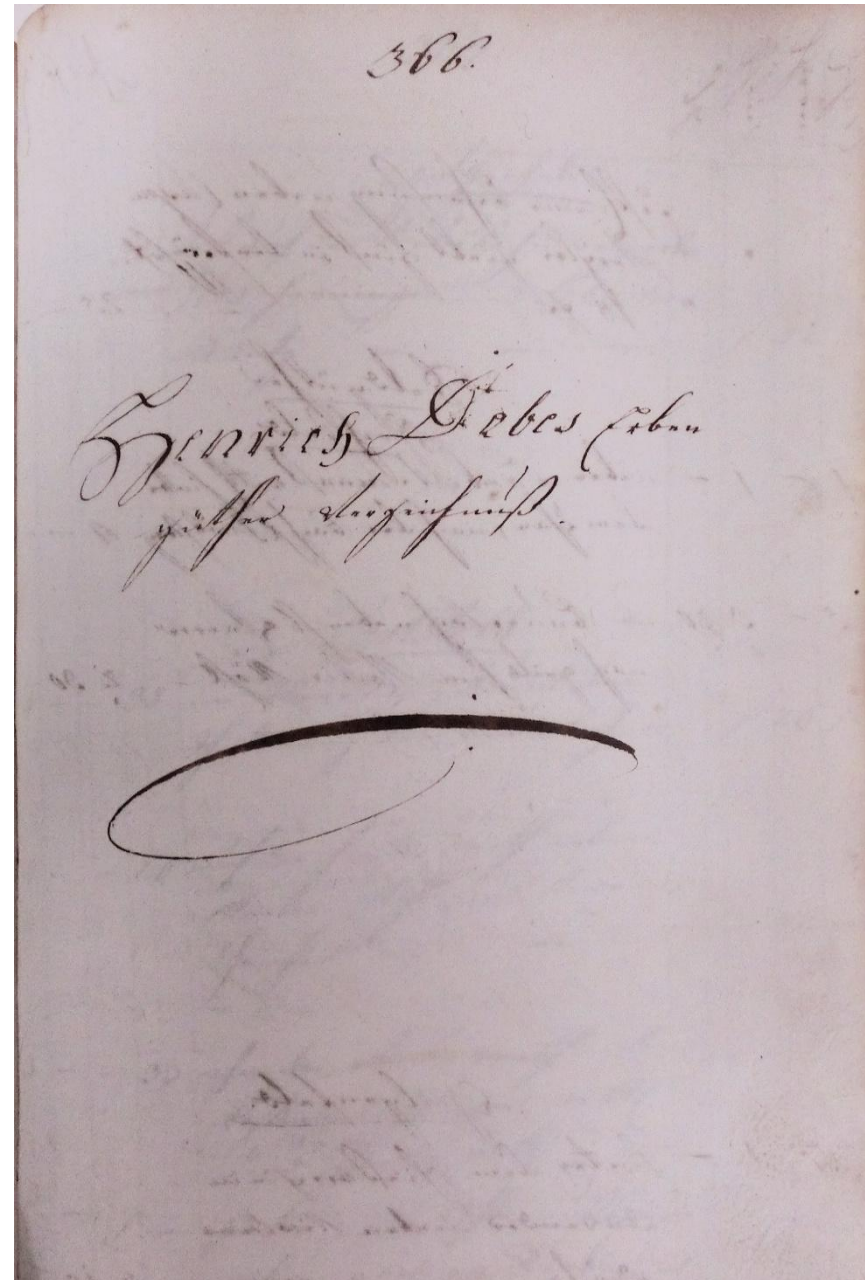 366.
Henrich Debes Erben
güther Verzeichnuß.